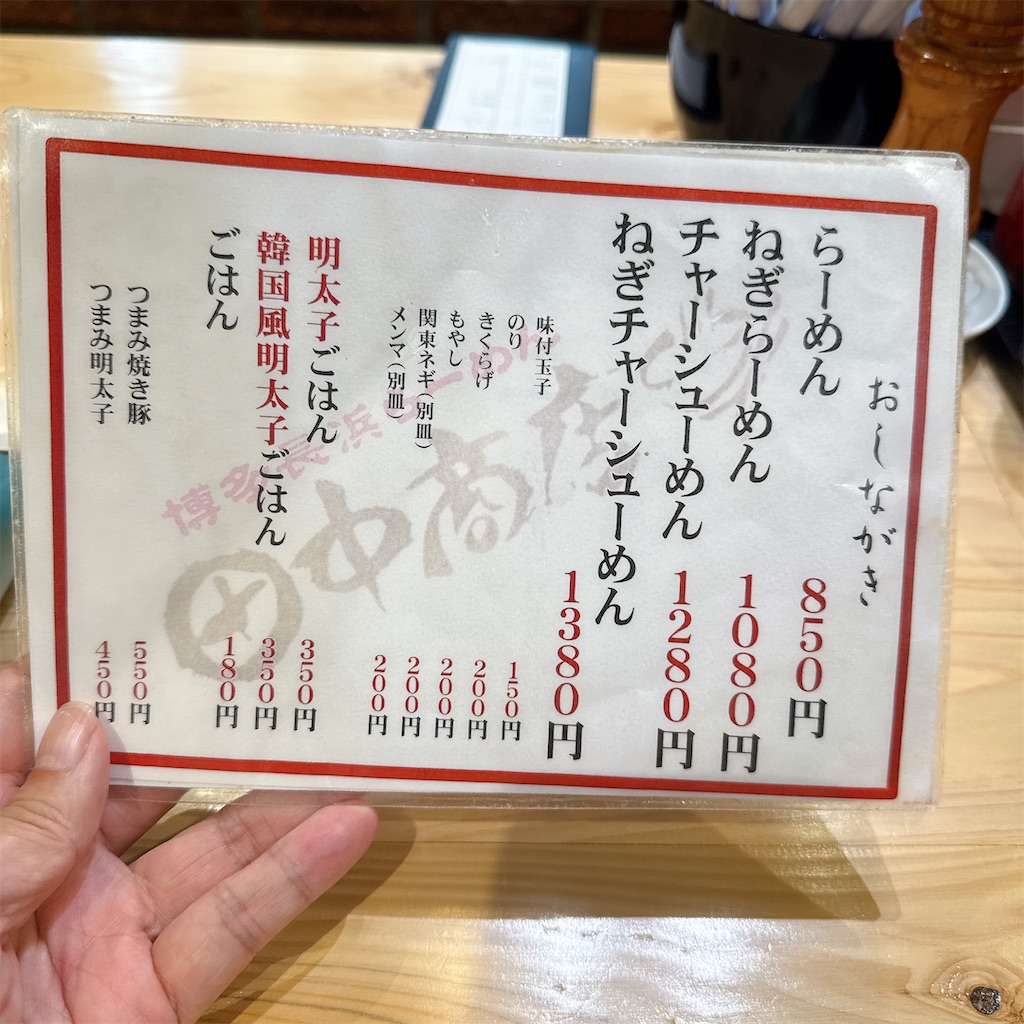 おしながき
らーめん 850円
ねぎらーめん 1080円
チャーシューめん 1280円
ねぎチャーシューめん 1380円
味付玉子 150円
のり 200円
きくらげ 200円
もやし 200円
関東ネギ(別皿) 200円
メンマ(別皿)
明太子ごはん 350円
韓国風明太子ごはん 350円
ごはん 180円
つまみ焼き豚 550円
つまみ明太子 450円
博多長浜らーめん
田中商店